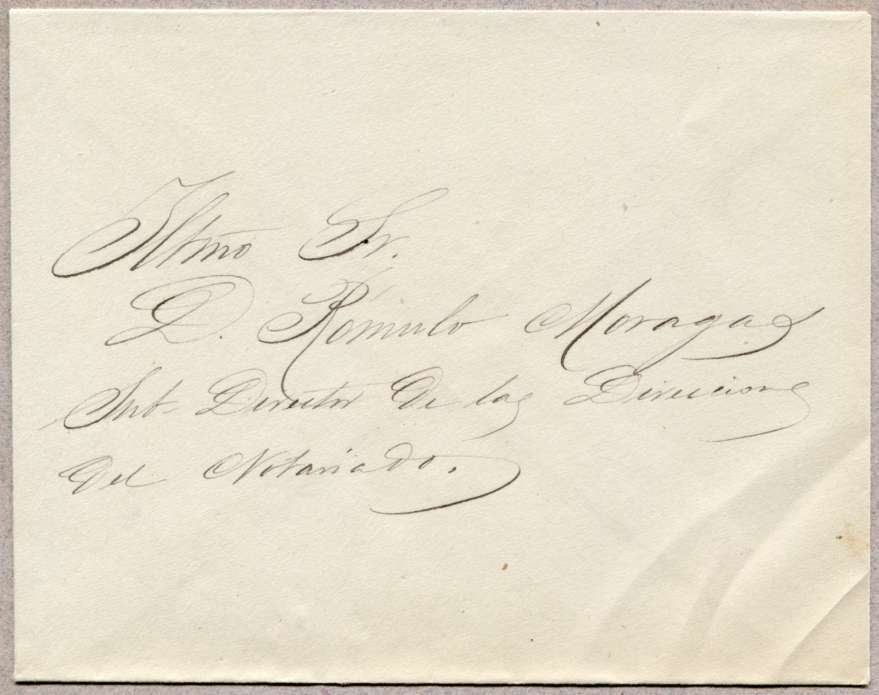 Iltmo Sr.
D. Rómulo Moragas
Sub-Director De las Direcciones
Del Notariado.